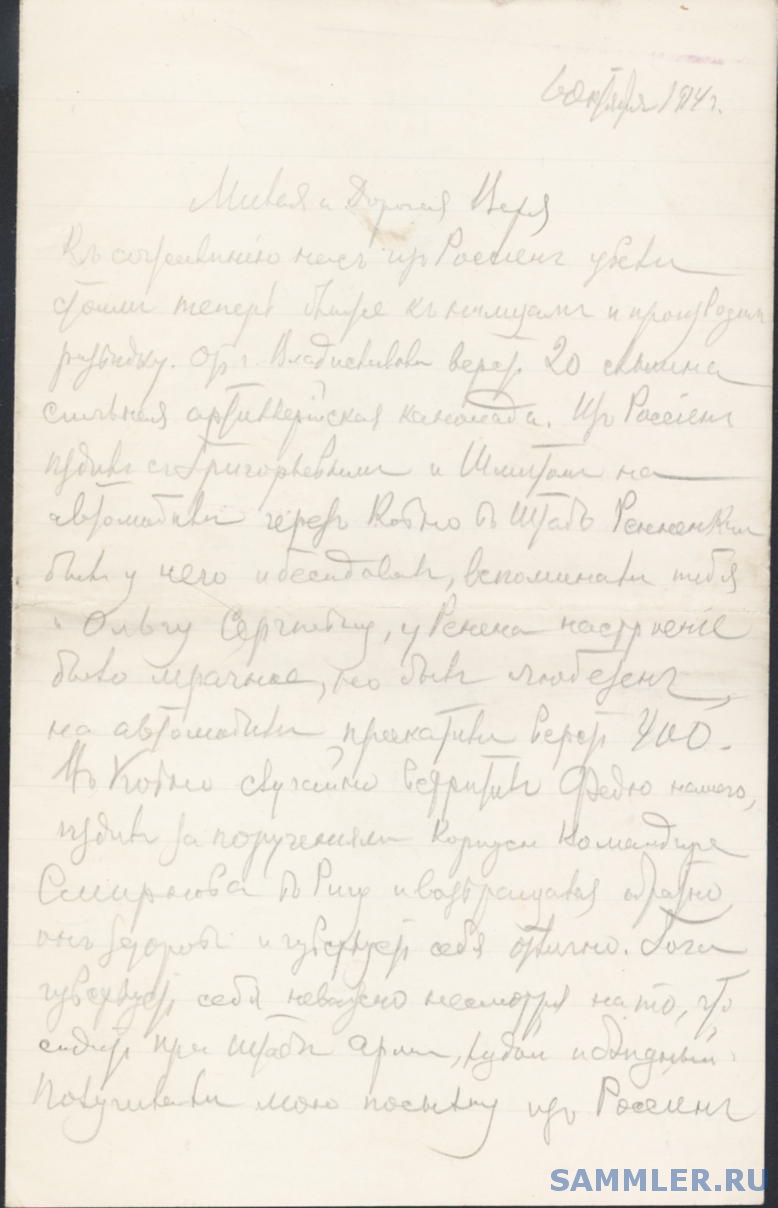 6 октября 1914 г.
Милая и дорогая Вера
Къ сожалѣнію насъ изъ Россіенъ увели
стоимъ теперь ближе къ нѣмцамъ и производимъ
развѣдку. Отъ г. Владиславова верстъ 20 слышна
сильная артиллерійская канонада. Изъ Россіенъ
ѣздилъ съ Григорьевымъ и Шмитомъ на
автомобилѣ черезъ Ковно въ Штабъ Ренненкам
былъ у него и бесѣдовалъ, вспоминали тебя
и Ольгу Сергѣевну, у Ренена настроеніе
было мрачное, но былъ любезенъ,
на автомобилѣ прокатили верстъ 400.
Въ Ковно случайно встрѣтилъ Федю нашего,
ѣздилъ за порученіями Корпусн Командира
Смирнова въ Ригу и возвращался обратно
онъ здоровъ и чувствуетъ себя отлично. Гоги
чувствуетъ себя неважно несмотря на то, что
сидитъ при штабѣ Арміи, худой и блѣдный
Получила ли мою посылку изъ Россіенъ
SAMMLER.RU